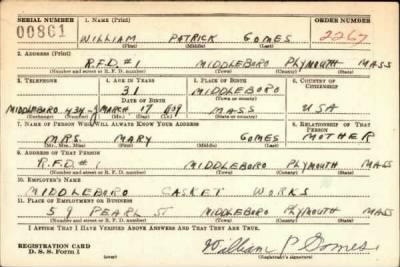 SERIAL NUMBER 1. NAME (Print) ORDER NUMBER
00861 WILLIAM PATRICK GOMES 2267
(First) (Middle) (Last)
2. ADDRESS (Print)
R.F.D. #1 MIDDLEBORO PLYMOUTH MASS
(Number and street or R. F. D. number) (Town) (County) (State)
3. TELEPHONE 4. AGE IN YEARS 5. PLACE OF BIRTH 6. COUNTRY OF CITIZENSHIP
31 MIDDLEBORO
DATE OF BIRTH (Town or county)
MIDDLEBORO 434- MARCH 17 1909 MASS USA
(Exchange) (Number) (Mo.) (Day) (Yr.) (State or country)
7. NAME OF PERSON WHO WILL ALWAYS KNOW YOUR ADDRESS 8. RELATIONSHIP OF THAT PERSON
MRS. MARY GOMES MOTHER
(Mr., Mrs., Miss) (First) (Middle) (Last)
9. ADDRESS OF THAT PERSON
R.F.D. #1 MIDDLEBORO PLYMOUTH MASS
(Number and street or R. F. D. number) (Town) (County) (State)
10. EMPLOYER'S NAME
MIDDLEBORO CASKET WORKS
11. PLACE OF EMPLOYMENT OR BUSINESS
59 PEARL ST MIDDLEBORO PLYMOUTH MASS
(Number and street or R. F. D. number) (Town) (County) (State)
I AFFIRM THAT I HAVE VERIFIED ABOVE ANSWERS AND THAT THEY ARE TRUE.
REGISTRATION CARD
D. S. S. Form 1 William P. Gomes
(Registrant's signature)